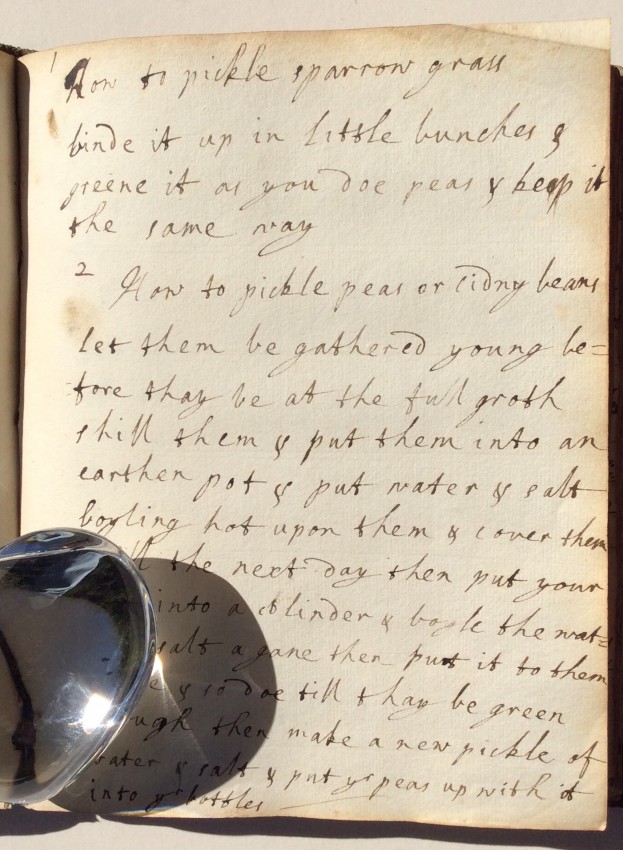 1
How to pickle sparrow grass
binde it up in little bunches &
greene it as you doe peas & keep it
the same way
2
How to pickle peas or cidny beans
let them be gathered young be=
fore thay be at the full groth
shill them & put them into an
earthen pot & put water & salt
boyling hot upon them & cover them
the next day then put your
into a cblinder & boyle the wat=
salt a gane then put it to them
& so doe till thay be green
then make a new pickle of
water & salt & put yr peas up with it
into yr bottles